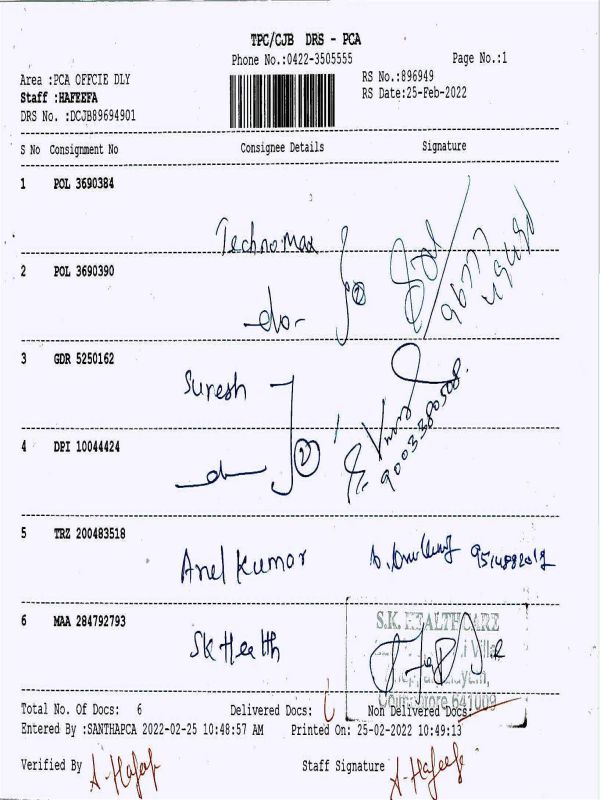 TPC/CJB DRS - PCA
Phone No.:0422-3505555
Page No.:1
Area :PCA OFFCIE DLY
RS No.:896949
Staff :HAFEEFA
RS Date:25-Feb-2022
DRS No. :DCJB89694901
S No Consignment No Consignee Details Signature
1 POL 3690384
Technomax
2 POL 3690390
-do-
3 GDR 5250162
Suresh
9003380508.
4 DPI 10044424
5 TRZ 200483518
Anel Kumar
6 MAA 284792793
SK Health
S.K. HEALTHCARE
Coimbatore 641009
Total No. Of Docs: 6 Delivered Docs: Non Delivered Docs:
Entered By :SANTHAPCA 2022-02-25 10:48:57 AM Printed On: 25-02-2022 10:49:13
Verified By A-Hafeefa Staff Signature A-Hafeefa